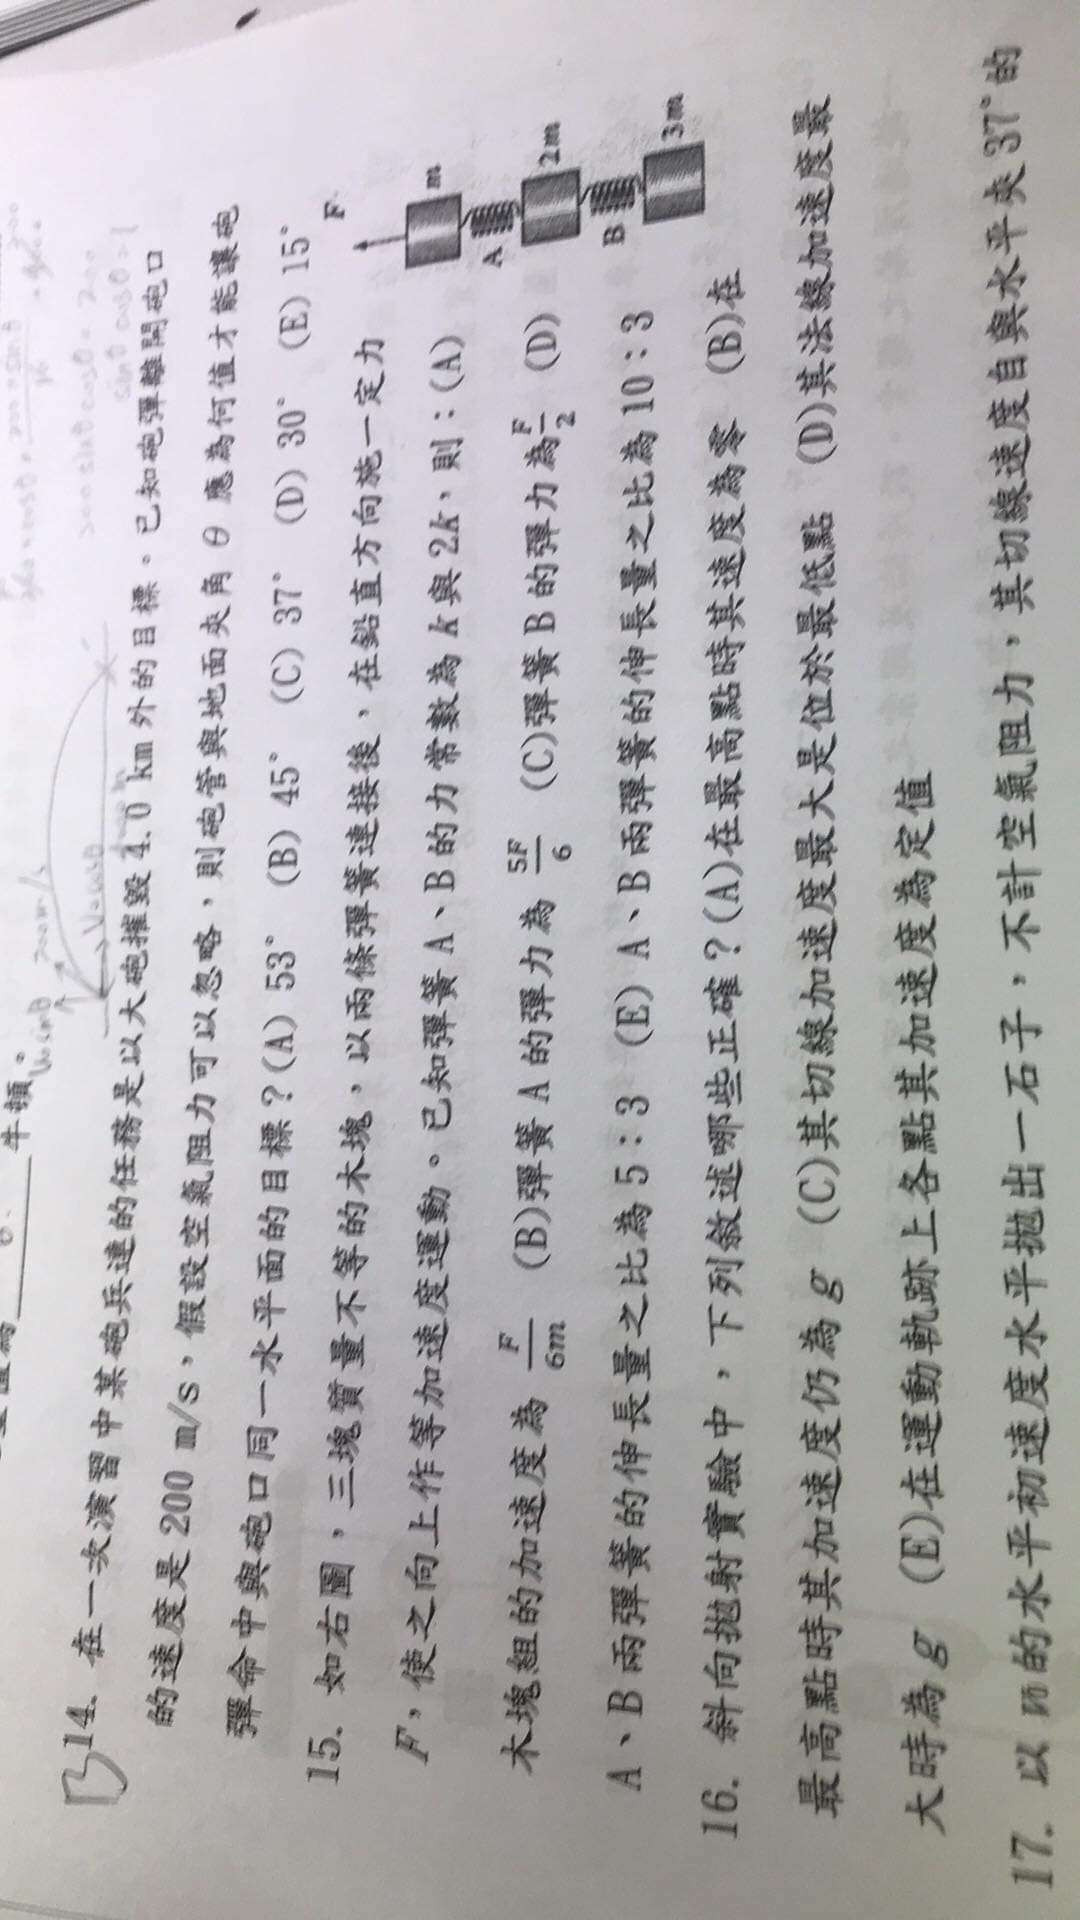 牛頓。
B 14. 在一次演習中某砲兵連的任務是以大砲摧毀 4.0 km 外的目標。已知砲彈離開砲口
的速度是 200 m/s，假設空氣阻力可以忽略，則砲管與地面夾角 θ 應為何值才能讓砲
彈命中與砲口同一水平面的目標？(A) 53° (B) 45° (C) 37° (D) 30° (E) 15°
15. 如右圖，三塊質量不等的木塊，以兩條彈簧連接後，在鉛直方向施一定力
F，使之向上作等加速度運動。已知彈簧 A、B 的力常數為 k 與 2k，則：(A)
木塊組的加速度為 F/6m (B)彈簧 A 的彈力為 5F/6 (C)彈簧 B 的彈力為 F/2 (D)
A、B 兩彈簧的伸長量之比為 5：3 (E) A、B 兩彈簧的伸長量之比為 10：3
F
m
A
2m
B
3m
16. 斜向拋射實驗中，下列敘述哪些正確？(A)在最高點時其速度為零 (B)在
最高點時其加速度仍為 g (C)其切線加速度最大是位於最低點 (D)其法線加速度最
大時為 g (E)在運動軌跡上各點其加速度為定值
17. 以 的水平初速度水平拋出一石子，不計空氣阻力，其切線速度自與水平夾 37° 的
200m/s
V₀cosθ